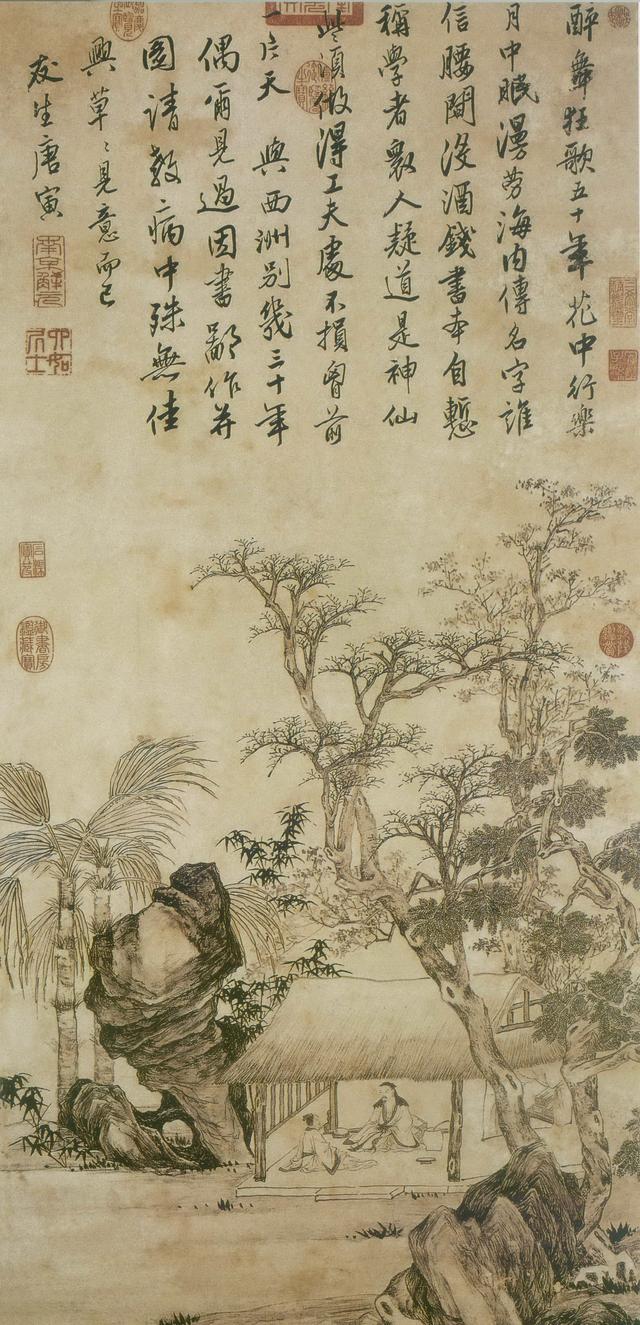 醉舞狂歌五十年花中行樂
月中眠漫勞海内傳名字誰
信腰間沒酒錢書本自慙
稱學者衆人疑道是神仙
些須做得工夫處不損胷前
一片天 與西洲别幾三十年
偶爾見過因書鄙作并
圖請教病中殊無佳
興草〻見意而已
友生唐寅
南京解元
六如居士
御書房鑑藏寶